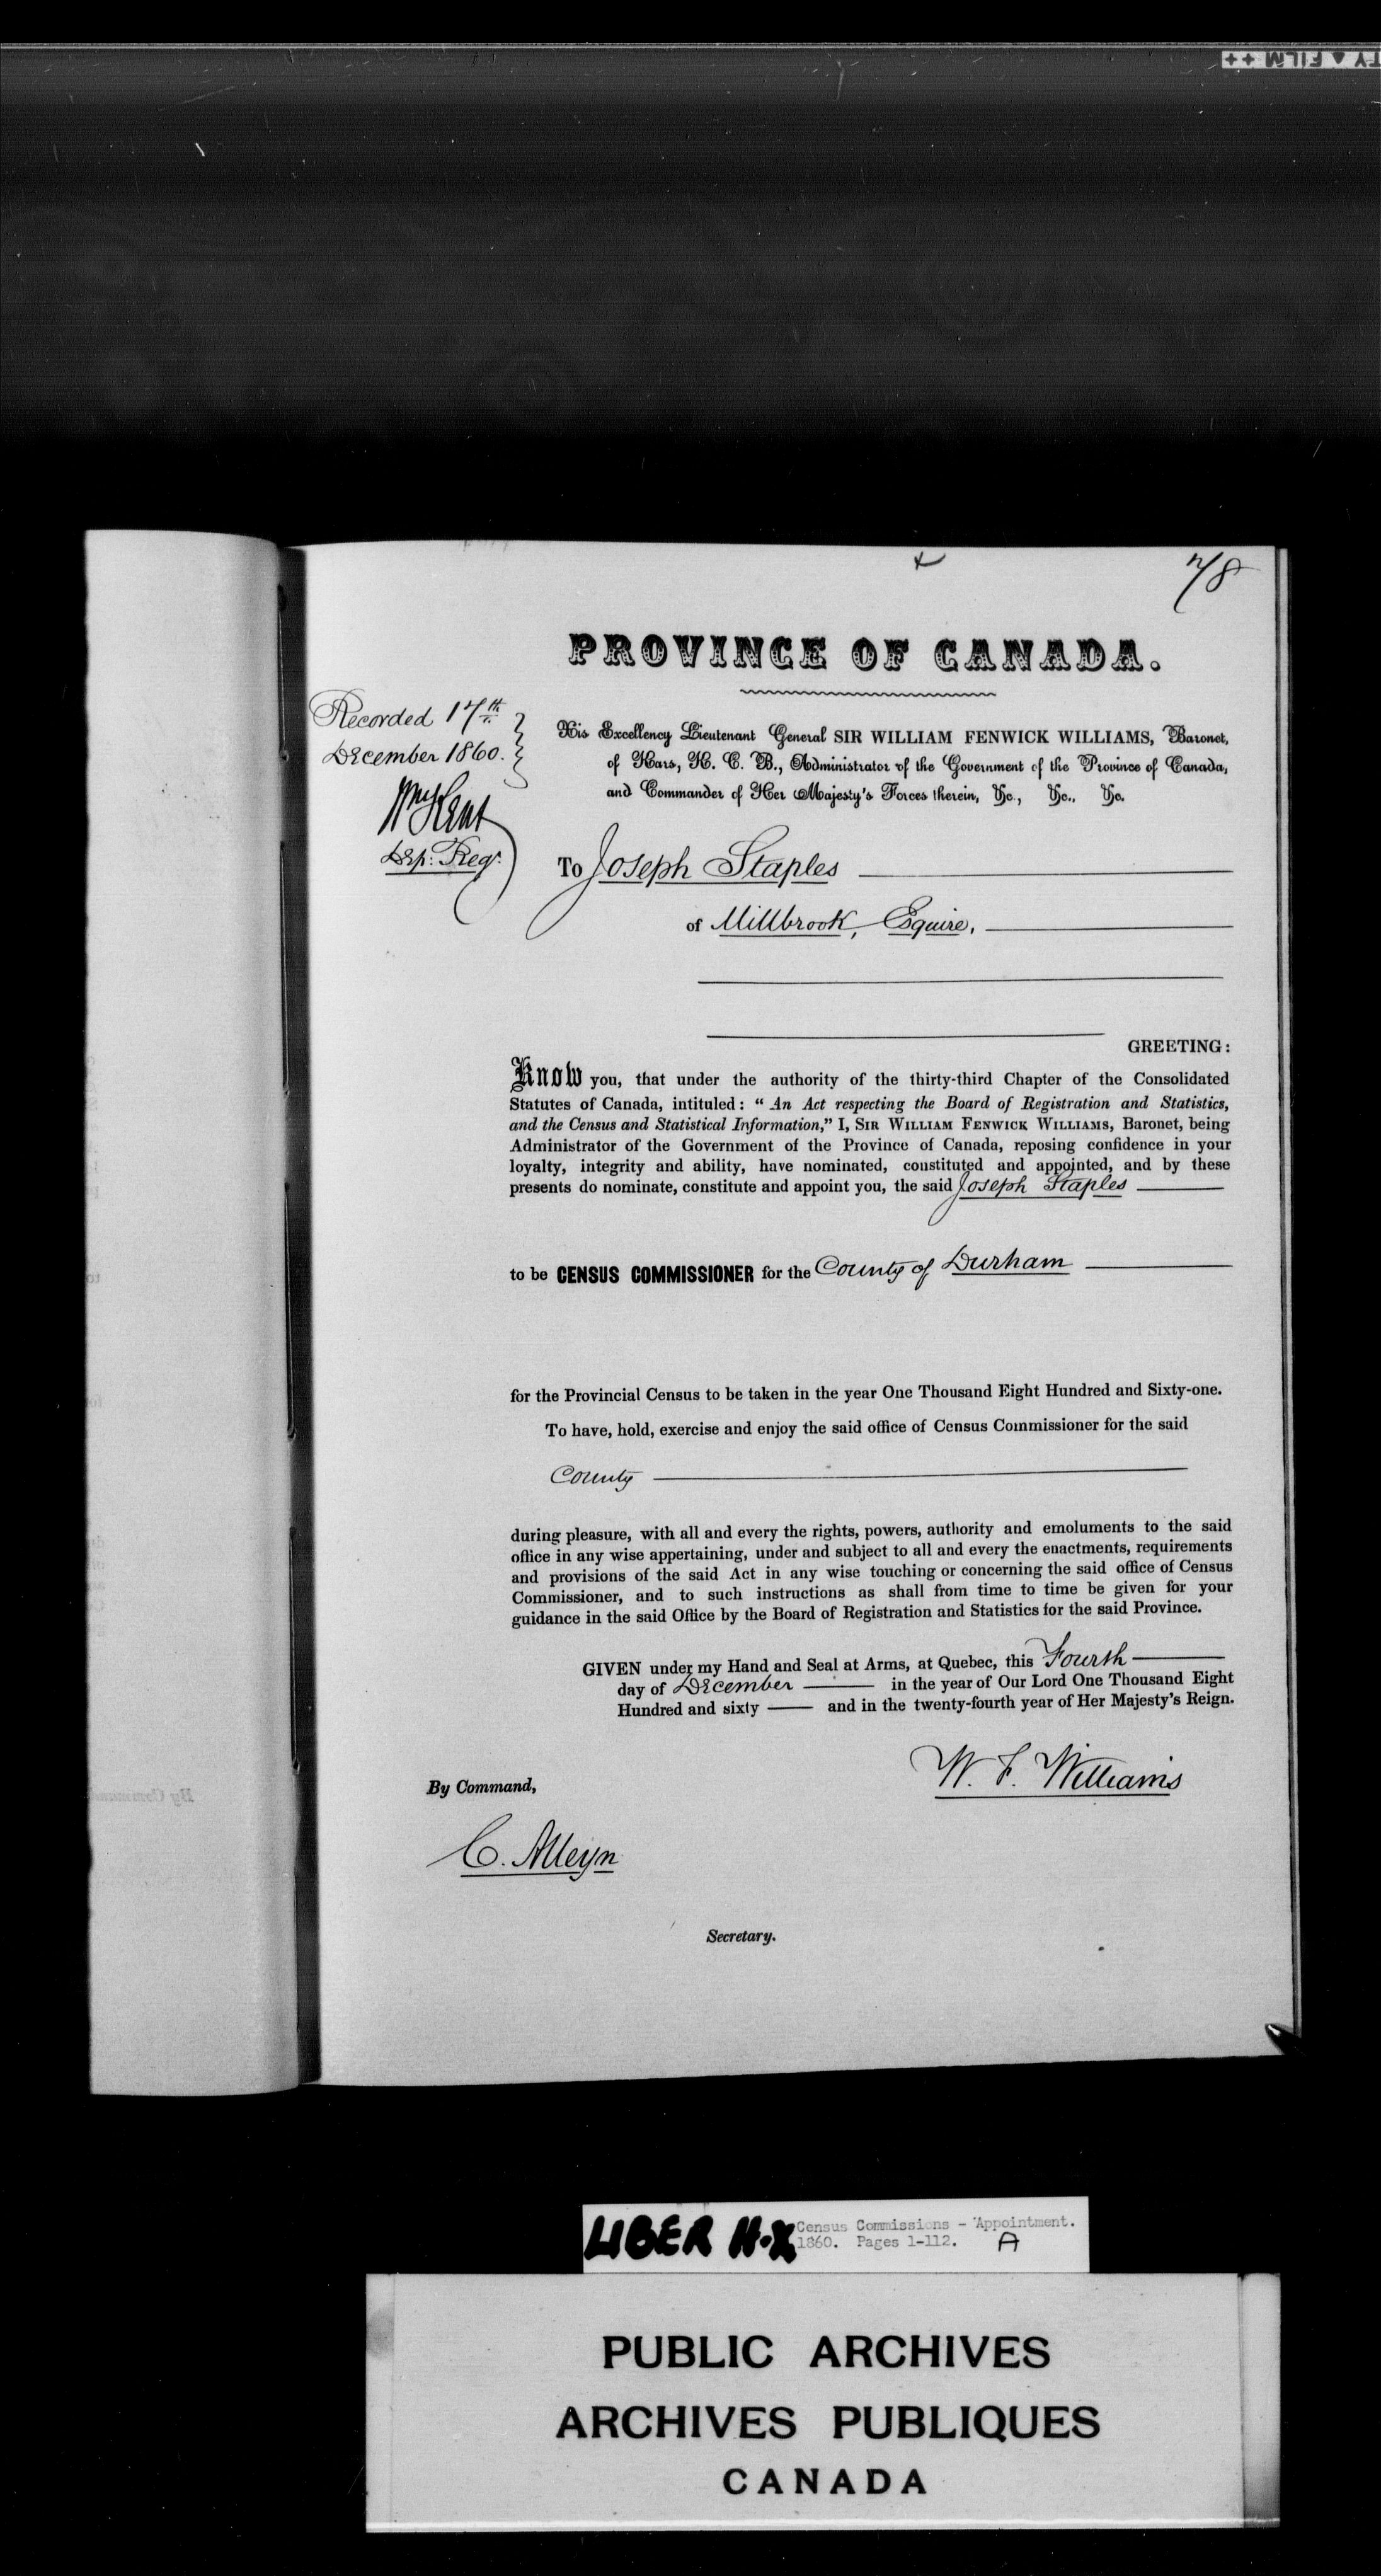 TY ▲ FILM ++
78
PROVINCE OF CANADA.
Recorded 17th
December 1860.
Wm Kent
Dep: Regr.
His Excellency Lieutenant General SIR WILLIAM FENWICK WILLIAMS, Baronet,
of Kars, K. C. B., Administrator of the Government of the Province of Canada,
and Commander of Her Majesty's Forces therein, &c., &c., &c.
To Joseph Staples
of Millbrook, Esquire,
GREETING:
Know you, that under the authority of the thirty-third Chapter of the Consolidated
Statutes of Canada, intituled: "An Act respecting the Board of Registration and Statistics,
and the Census and Statistical Information," I, SIR WILLIAM FENWICK WILLIAMS, Baronet, being
Administrator of the Government of the Province of Canada, reposing confidence in your
loyalty, integrity and ability, have nominated, constituted and appointed, and by these
presents do nominate, constitute and appoint you, the said Joseph Staples
to be CENSUS COMMISSIONER for the County of Durham
for the Provincial Census to be taken in the year One Thousand Eight Hundred and Sixty-one.
To have, hold, exercise and enjoy the said office of Census Commissioner for the said
County
during pleasure, with all and every the rights, powers, authority and emoluments to the said
office in any wise appertaining, under and subject to all and every the enactments, requirements
and provisions of the said Act in any wise touching or concerning the said office of Census
Commissioner, and to such instructions as shall from time to time be given for your
guidance in the said Office by the Board of Registration and Statistics for the said Province.
GIVEN under my Hand and Seal at Arms, at Quebec, this Fourth
day of December in the year of Our Lord One Thousand Eight
Hundred and sixty and in the twenty-fourth year of Her Majesty's Reign.
W. F. Williams
By Command,
C. Alleyn
Secretary.
By Command
LIBER H-X Census Commissions - Appointment.
1860. Pages 1-112. A
PUBLIC ARCHIVES
ARCHIVES PUBLIQUES
CANADA